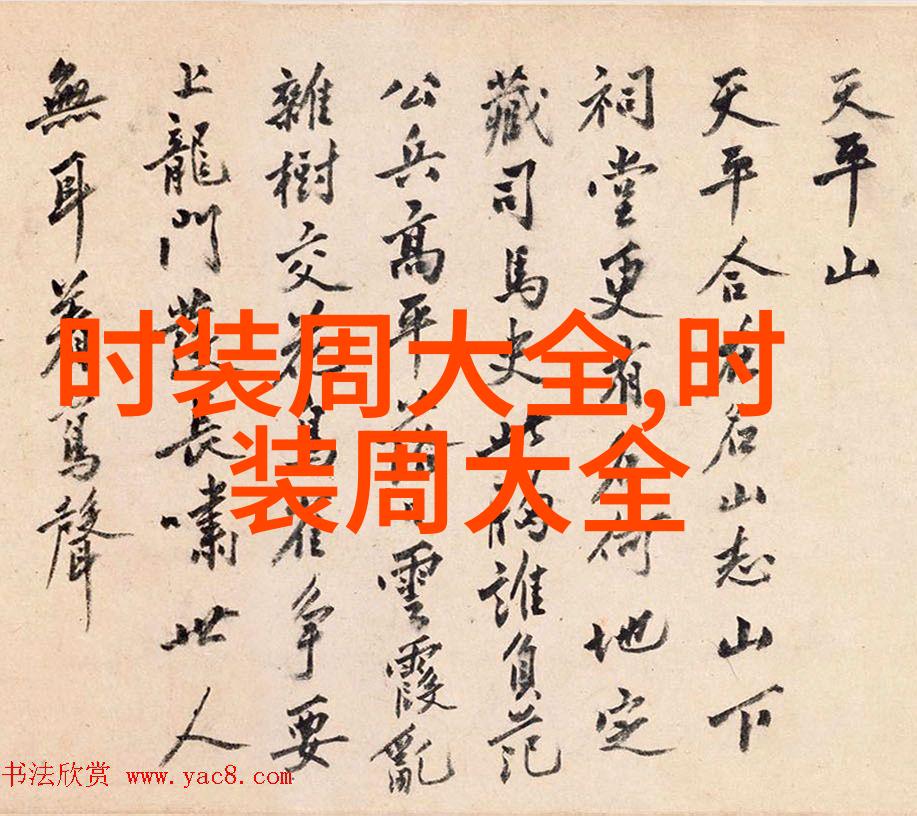 天平山
天平合名山志山下
祠堂更有地定
藏司馬史此誰負范
公兵高平雲霞亂
雜樹交雀争要
上龍門長嘯世人
無耳着聲
时装周大全,时
装周大全
书法欣赏 www.yac8.com